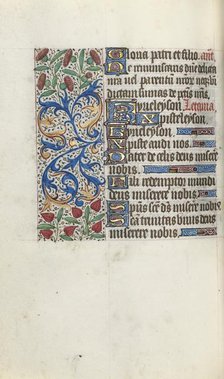 Gloria patri et filio. ant
Ne reminiscaris dñe delicta
nr̃a vel parentũ nr̃or
dictam sumas de pctĩs nr̃is.
Kyrieleyson. Letania
Xp̃isteleyson.
Kyrieleyson
Xp̃iste audi nos.
Pater de celis deus miserere
nobis.
Fili redemptor mundi
deus miserere nobis.
Sp̃us scẽ ds̃ misere nobis.
Scã trinitas unus deus
miserere nobis.